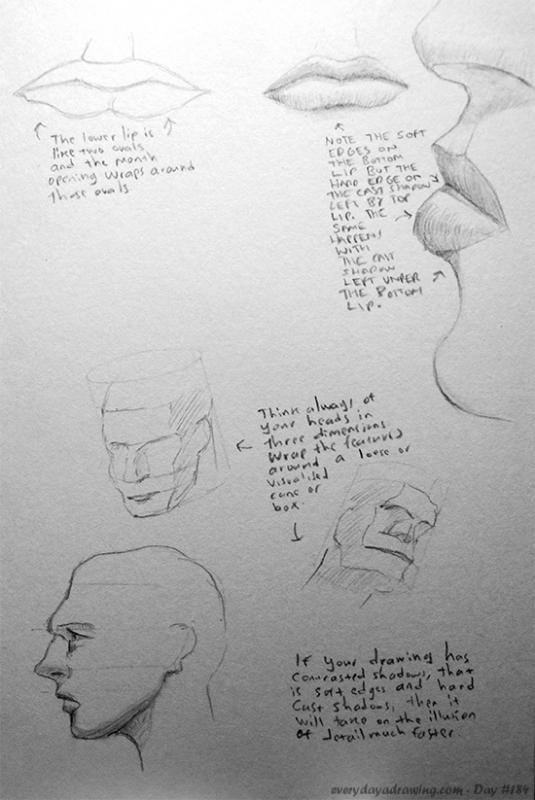 The lower lip is
like two ovals
and the mouth
opening wraps around
those ovals
NOTE THE SOFT
EDGES ON
THE BOTTOM
LIP BUT THE
HARD EDGE ON
THE CAST SHADOW
LEFT BY TOP
LIP. THE
SAME
HAPPENS
WITH
THE CAST
SHADOW
LEFT UNDER
THE BOTTOM
LIP.
Think always of
your heads in
three dimensions.
Wrap the features
around a loose or
visualised
cone or
box.
If your drawing has
contrasted shadows, that
is soft edges and hard
cast shadows, then it
will take on the illusion
of detail much faster
everydayadrawing.com - Day #184